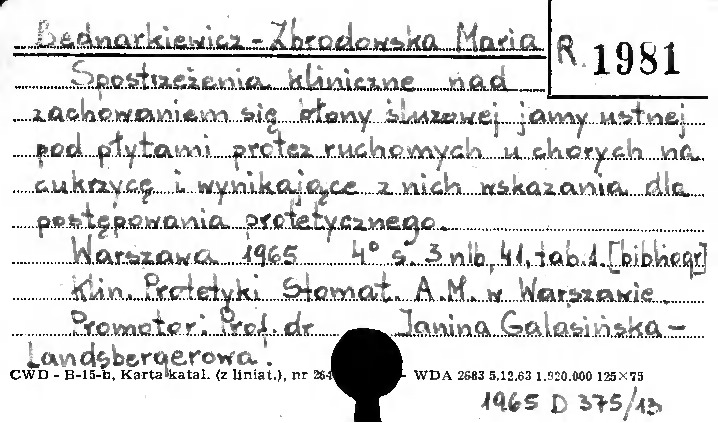 Bednarkiewicz-Zbrodowska Maria
R. 1981
Spostrzeżenia kliniczne nad
zachowaniem się błony śluzowej jamy ustnej
pod płytami protez ruchomych u chorych na
cukrzycę i wynikające z nich wskazania dla
postępowania protetycznego.
Warszawa 1965 4° s. 3 nlb, 41, tab. 1. [bibliogr]
Klin. Protetyki Stomat. A.M. w Warszawie.
Promotor: Prof. dr Janina Galasińska-
Landsbergerowa.
CWD - B-15-b, Karta katal. (z liniat.), nr 264 - WDA 2683 5.12.63 1.920.000 125×75
1965 D 375/13